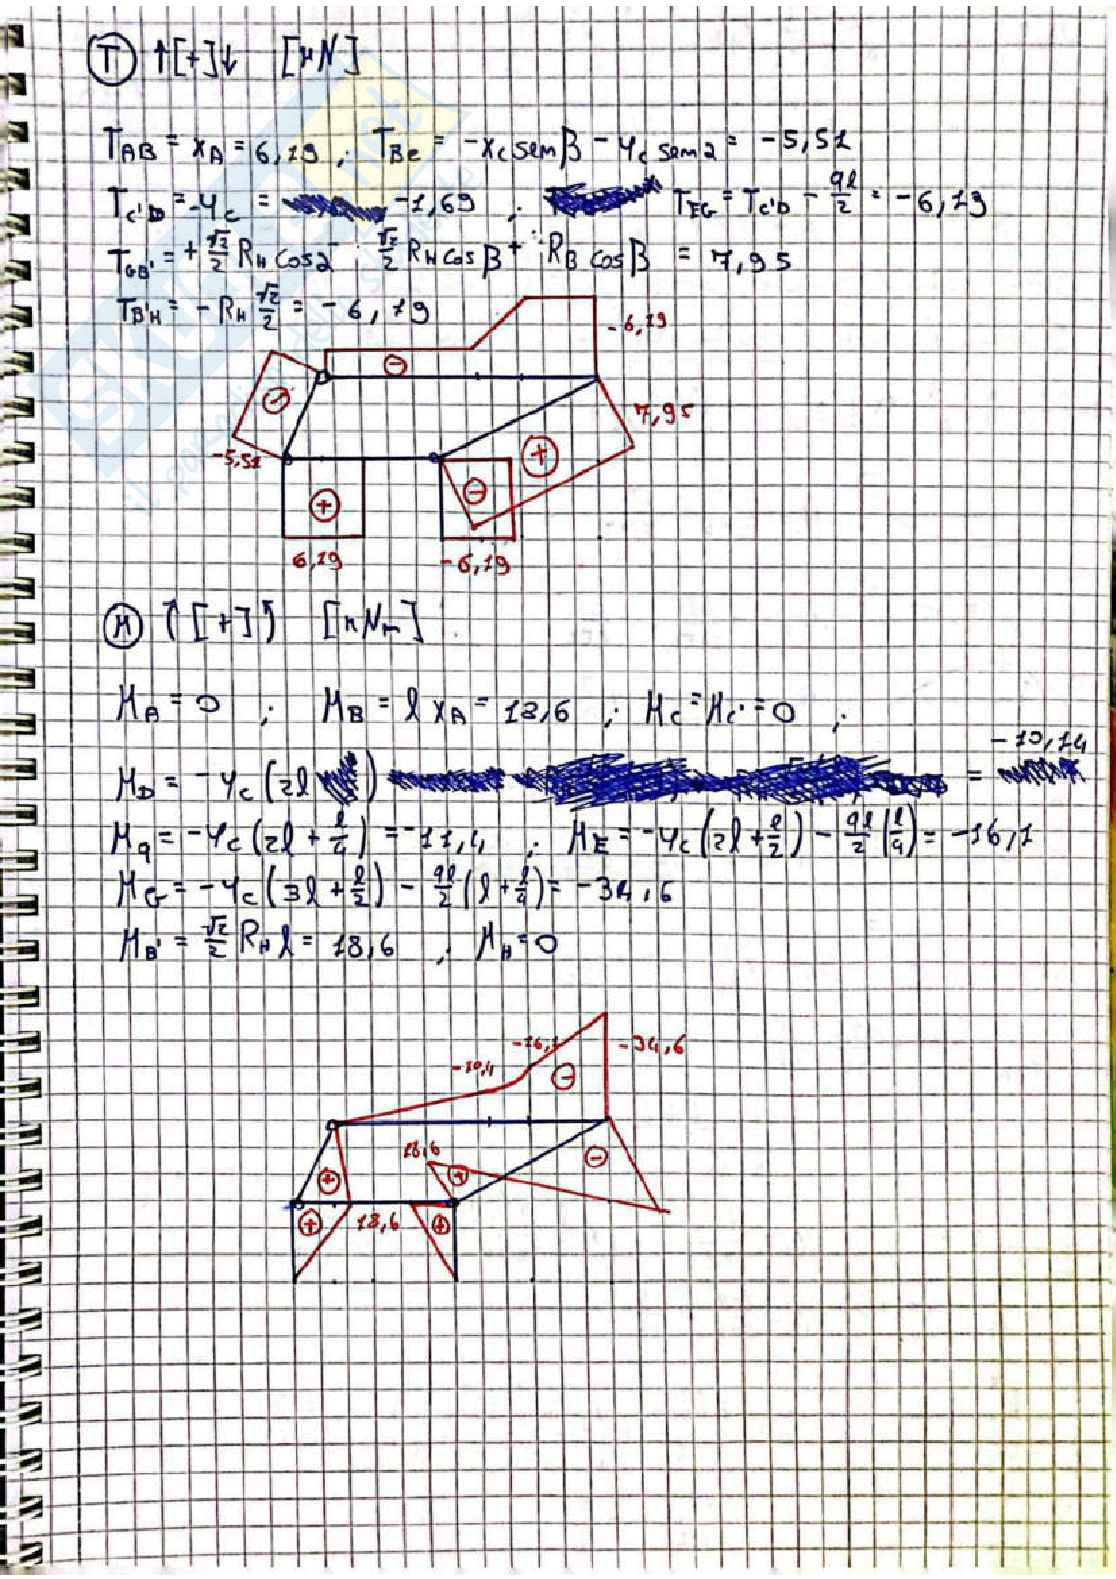 T ↑[+]↓ [kN]
T_AB = X_A = 6,19 ; T_BC = -X_C sen β - Y_C sen α = -5,51
T_C'D = -Y_C = -1,69 ; T_EG = T_C'D - ql/2 = -6,19
T_GB' = + √2/2 R_H cos α - √2/2 R_H cos β + R_B cos β = 7,95
T_B'H = - R_H √2/2 = -6,19
-6,19
7,95
-5,51
6,19
-6,19
M [+] [kNm]
M_A = 0 ; M_B = l X_A = 18,6 ; M_C = M_C' = 0 ;
M_D = -Y_C (2l) = -10,14
M_q = -Y_C (2l + l/4) = -11,4 ; M_E = -Y_C (2l + l/2) - ql/2 (l/4) = -16,1
M_G = -Y_C (3l + l/2) - ql/2 (l + l/4) = -34,6
M_B' = √2/2 R_H l = 18,6 , M_H = 0
-16,1
-34,6
-10,4
18,6
18,6